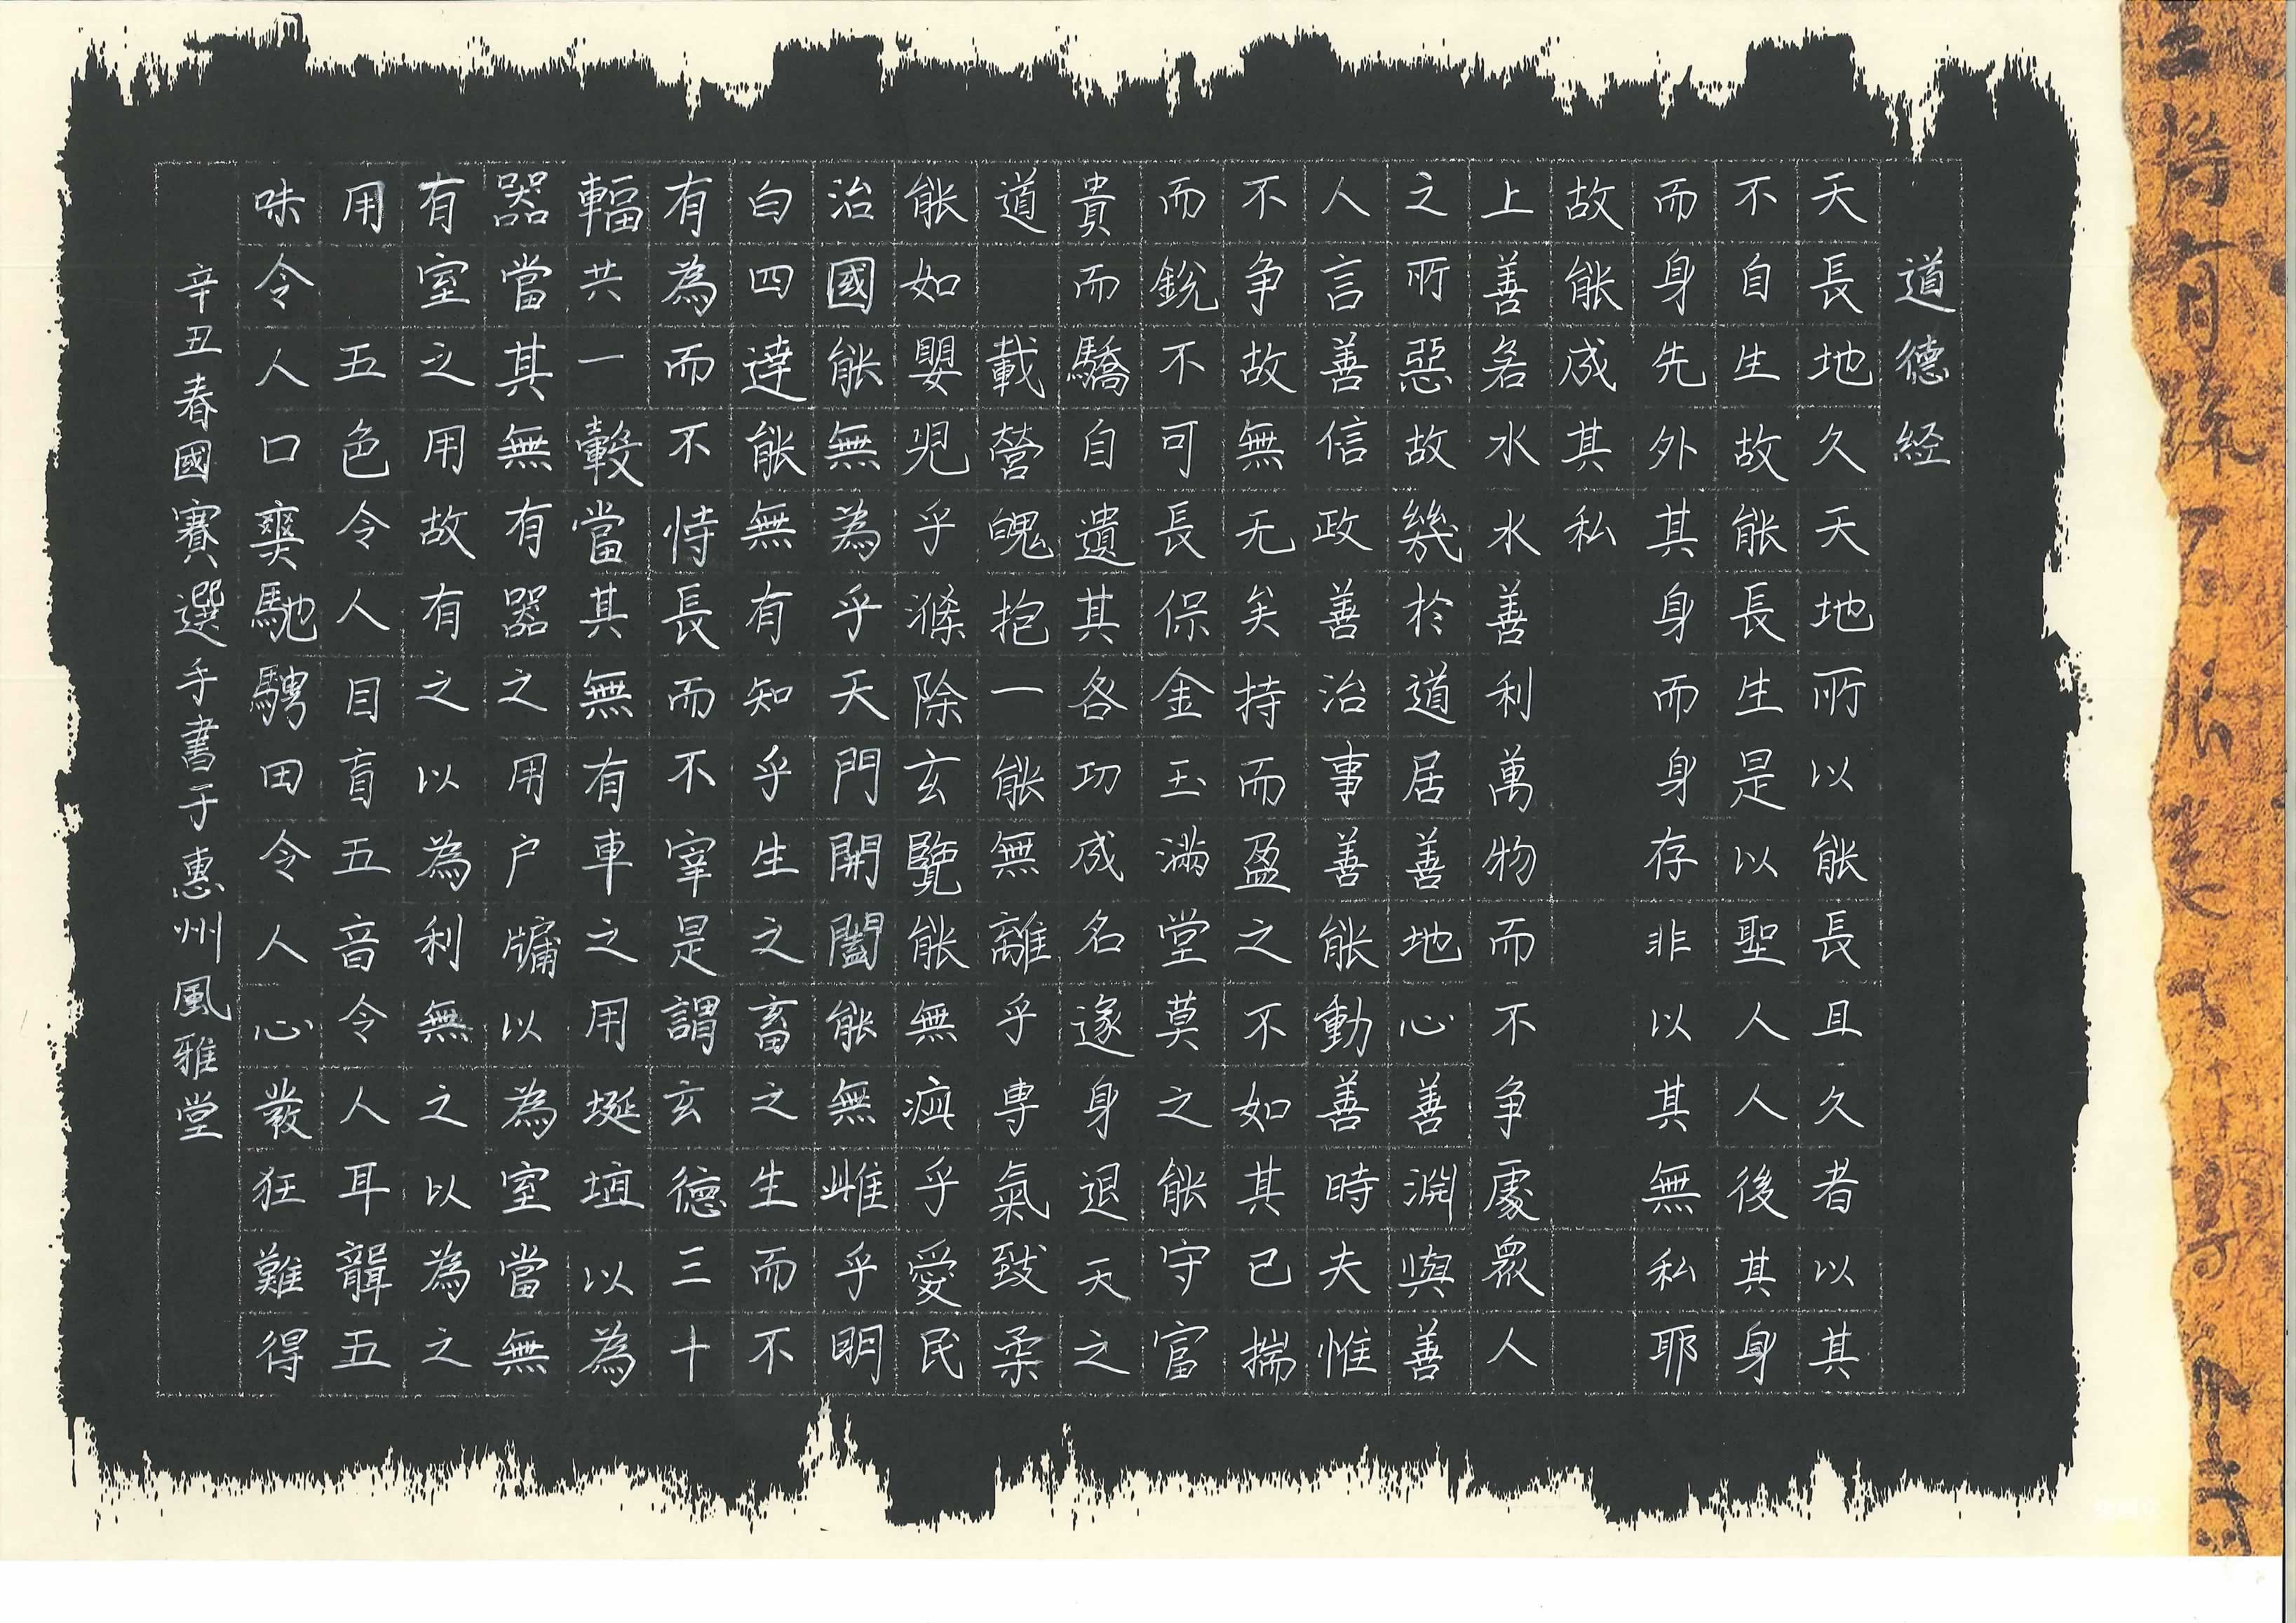 道德经
天長地久天地所以能長且久者以其
不自生故能長生是以聖人人後其身
而身先外其身而身存非以其無私耶
故能成其私
上善若水水善利萬物而不争處眾人
之所惡故幾於道居善地心善淵與善
人言善信政善治事善能動善時夫惟
不争故無无矣持而盈之不如其已揣
而銳不可長保金玉滿堂莫之能守富
貴而驕自遺其各功成名遂身退天之
道 載營魄抱一能無離乎專氣致柔
能如嬰児乎滌除玄覽能無疵乎愛民
治國能無為乎天門開闔能無雌乎明
白四達能無有知乎生之畜之生而不
有為而不恃長而不宰是謂玄德三十
輻共一轂當其無有車之用埏埴以為
器當其無有器之用户牖以為室當無
有室之用故有之以為利無之以為之
用 五色令人目盲五音令人耳聾五
味令人口爽馳騁田令人心發狂難得
辛丑春國賽選手書于惠州風雅堂